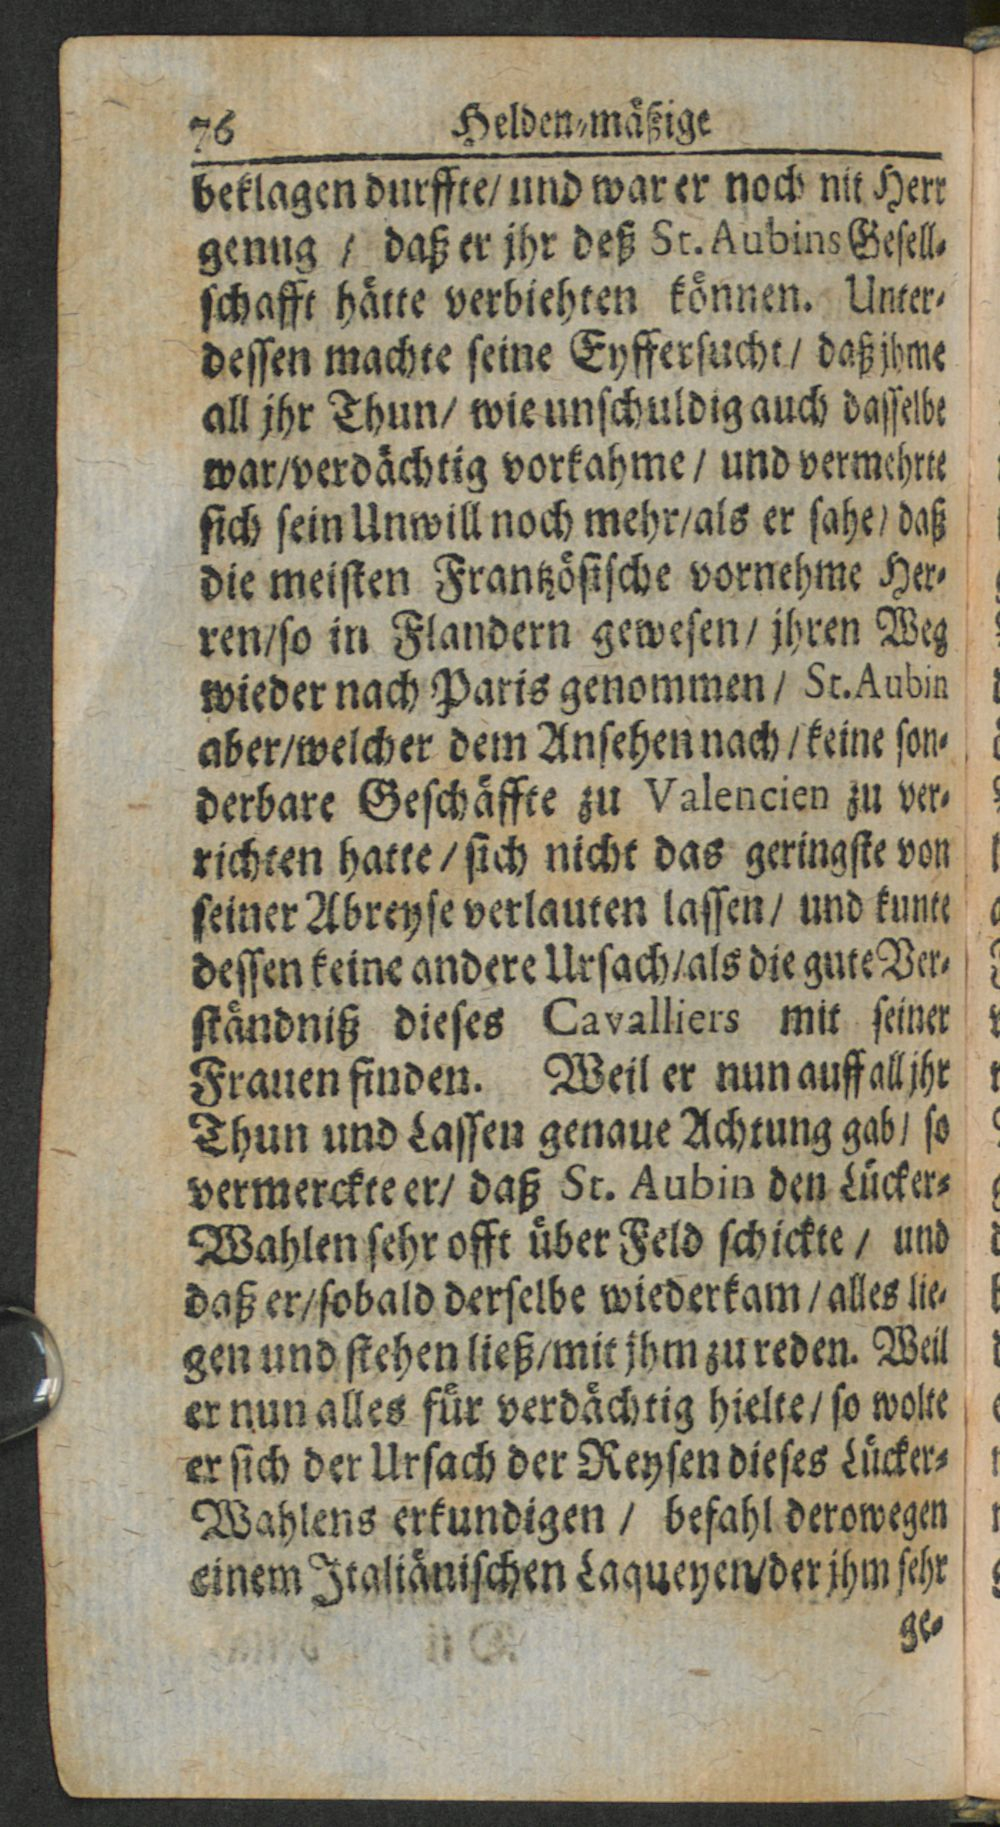 76 Helden-mäßige
beklagen durffte/ und war er noch nit Herr
genug / daß er jhr deß St. Aubins Gesell-
schafft hätte verbiehten können. Unter-
dessen machte seine Eyffersucht/ daß jhme
all jhr Thun/ wie unschuldig auch dasselbe
war/verdächtig vorkahme / und vermehrte
sich sein Unwill noch mehr/als er sahe/ daß
die meisten Frantzösische vornehme Her-
ren/so in Flandern gewesen/ jhren Weg
wieder nach Paris genommen / St. Aubin
aber/welcher dem Ansehen nach / keine son-
derbare Geschäffte zu Valencien zu ver-
richten hatte / sich nicht das geringste von
seiner Abreyse verlauten lassen/ und kunte
dessen keine andere Ursach/als die gute Ver-
ständniß dieses Cavalliers mit seiner
Frauen finden. Weil er nun auff all jhr
Thun und Lassen genaue Achtung gab/ so
vermerckte er/ daß St. Aubin den Lücker-
Wahlen sehr offt über Feld schickte / und
daß er/sobald derselbe wiederkam / alles lie-
gen und stehen ließ/mit jhm zu reden. Weil
er nun alles für verdächtig hielte/ so wolte
er sich der Ursach der Reysen dieses Lücker-
Wahlens erkundigen / befahl derowegen
einem Italiänischen Laqueyen/der jhm sehr
ge-